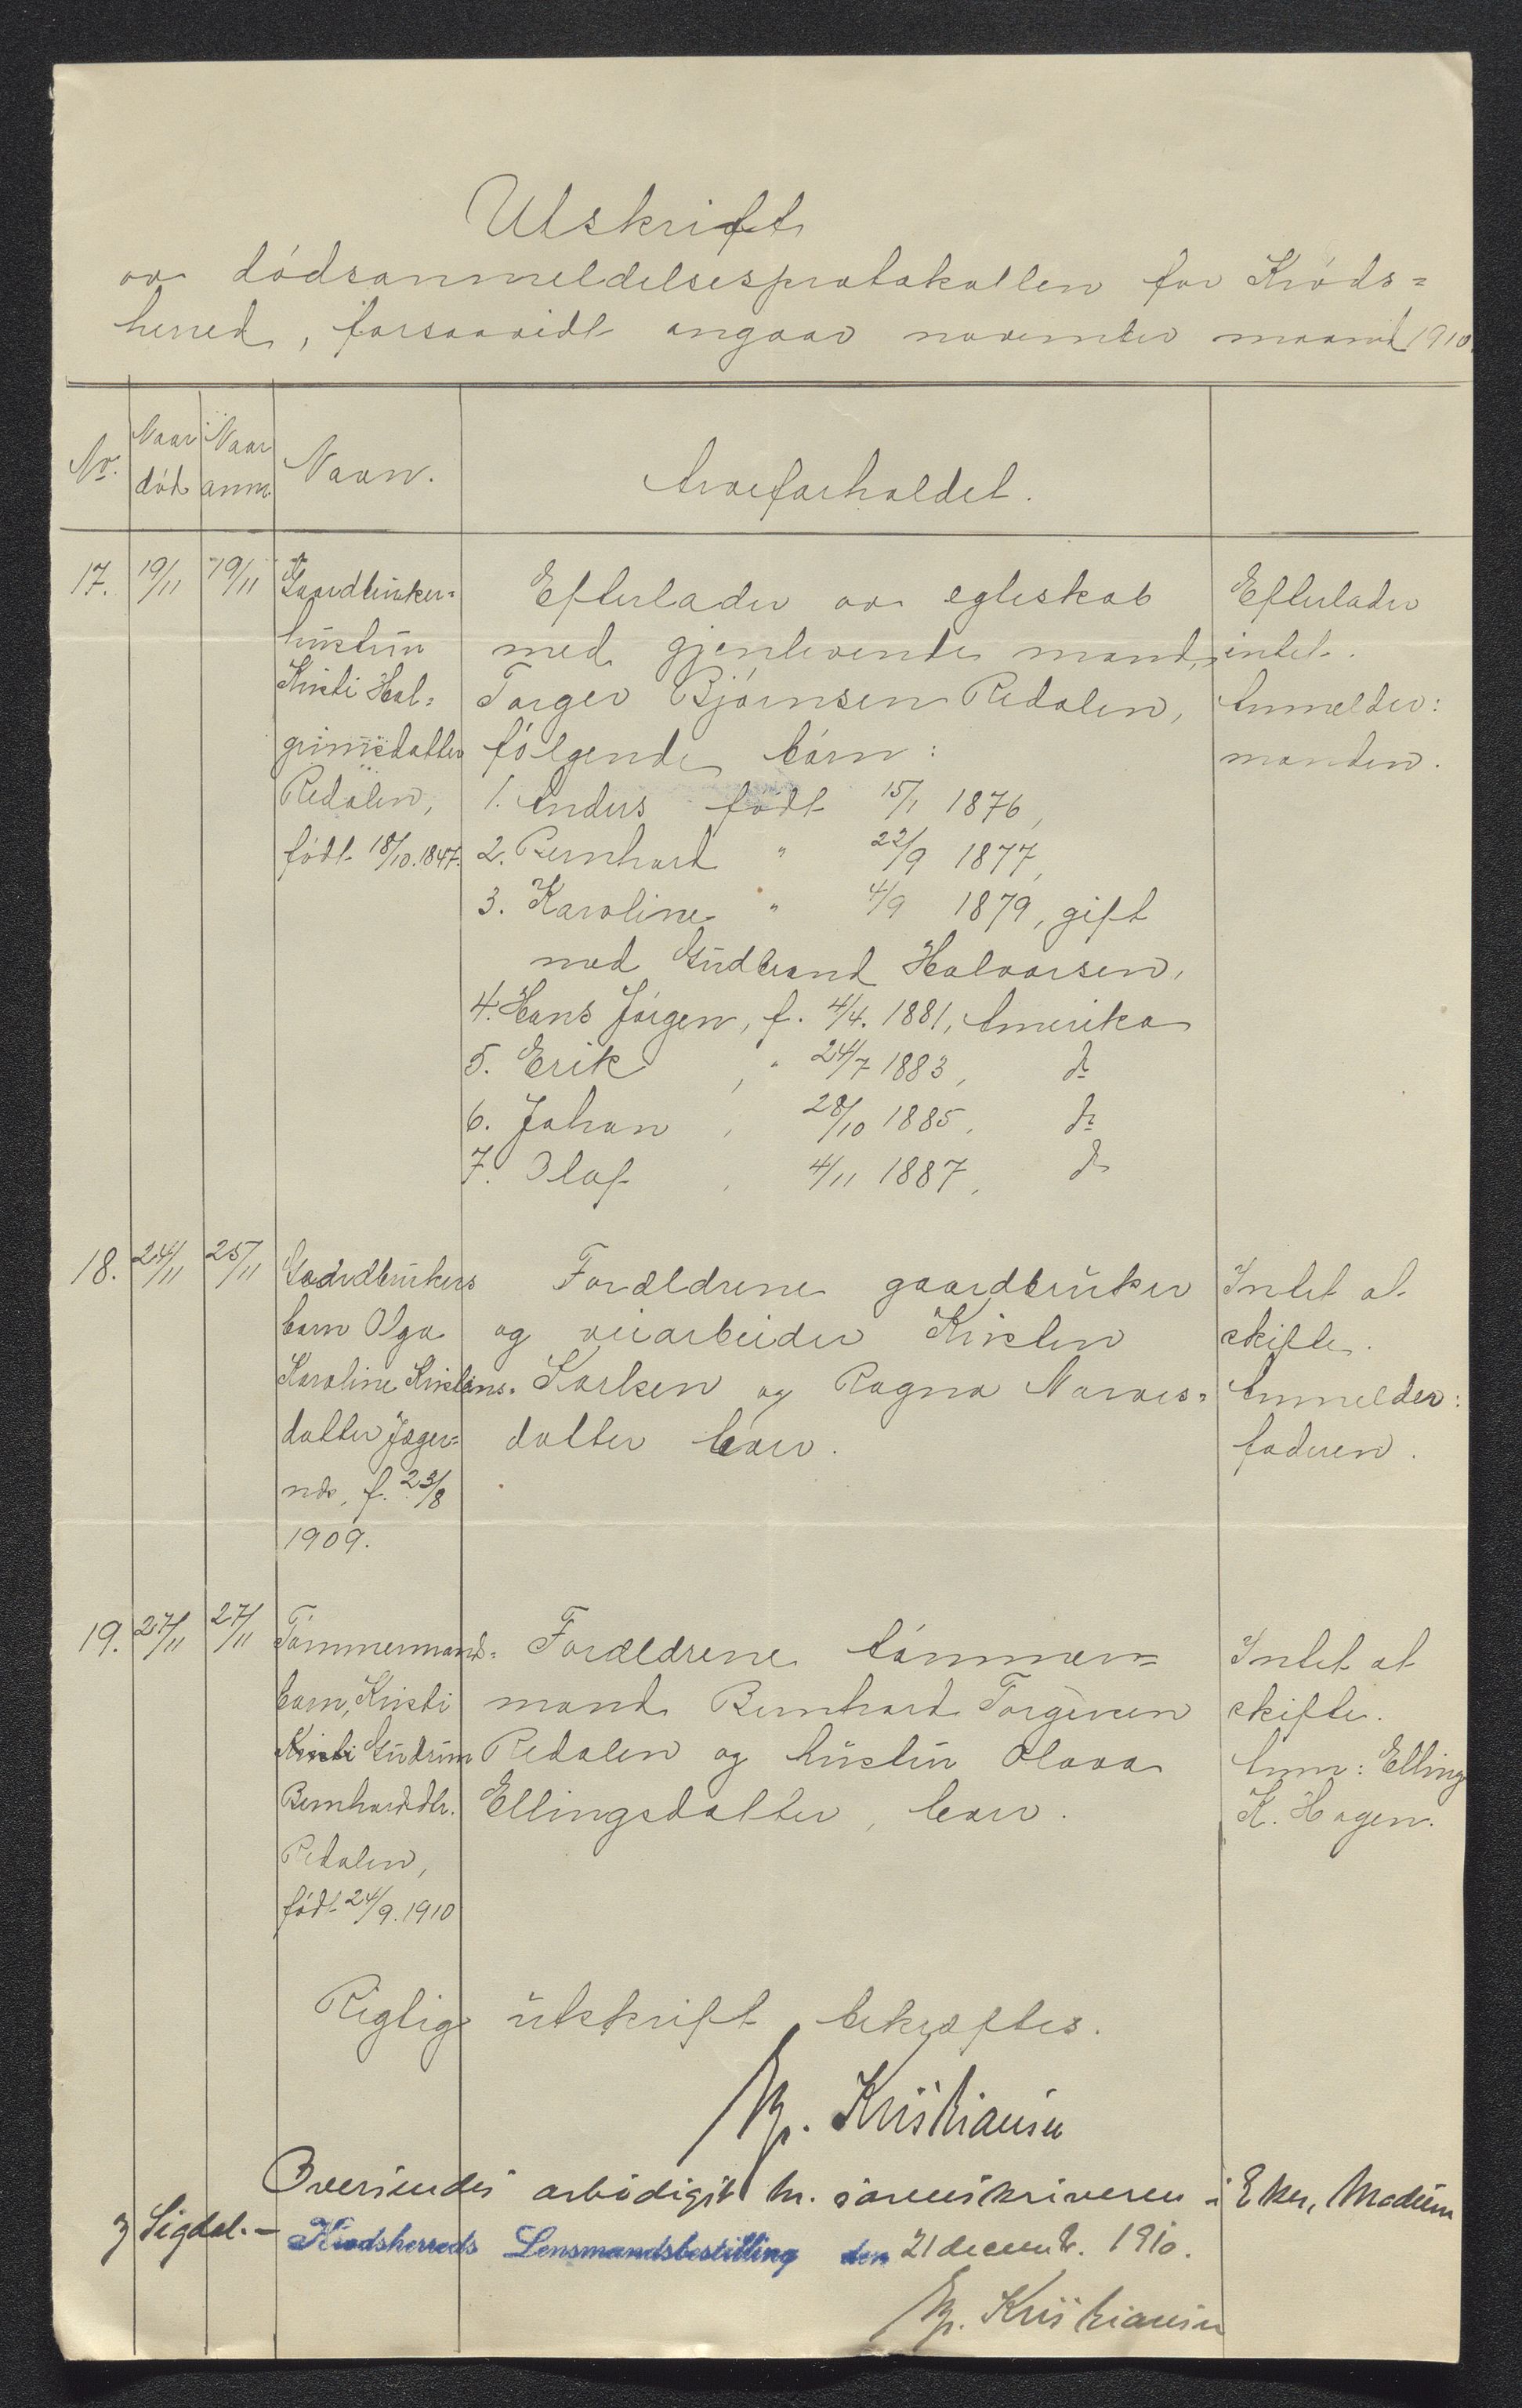 Utskrift
av dødsanmeldelsesprotokollen for Krøds=
herred, forsaavidt angaar november maaned 1910.
No. Naar død Naar anm. Navn. Arveforholdet.
17. 19/11 19/11
Gaardbruker=
hustru
Kristi Hal=
grimsdatter
Redalen,
født 18/10.1847.
Efterlader av egteskab
med gjenlevende mand,
Torger Bjørnsen Redalen,
følgende børn:
1. Anders født 15/1 1876,
2. Bernhard " 22/9 1877,
3. Karoline " 4/9 1879, gift
med Gudbrand Halvorsen,
4. Hans Jørgen, f. 4/4. 1881, Amerika
5. Erik , " 24/7 1883, do
6. Johan , 28/10 1885, do
7. Olaf , 4/11 1887, do
Efterlader
intet.
Anmelder:
manden.
18. 24/11 25/11
Gaardbrukers
barn Olga
Karoline Kristens=
datter Jager=
nds, f. 23/8
1909.
Forældrene gaardbruker
og veiarbeider Kristen
Karlsen og Ragna Narves=
datter lever.
Intet at
skifte.
Anmelder:
faderen.
19. 27/11 27/11
Tømmermands=
barn, Kristi
Kristi Gudrun
Bernhardsdtr.
Redalen,
født 24/9.1910
Forældrene tømmer=
mand Bernhard Torgersen
Redalen og hustru Olava
Ellingsdatter, lever.
Intet at
skifte.
Anm: Elling
K. Hagen.
Rigtig utskrift bekræftes.
Kristiansen
Oversendes ærbødigst hr. sorenskriveren i Eker, Modum
og Sigdal. —
Krødsherreds Lensmandsbestilling den 21 decemb. 1910.
Kristiansen